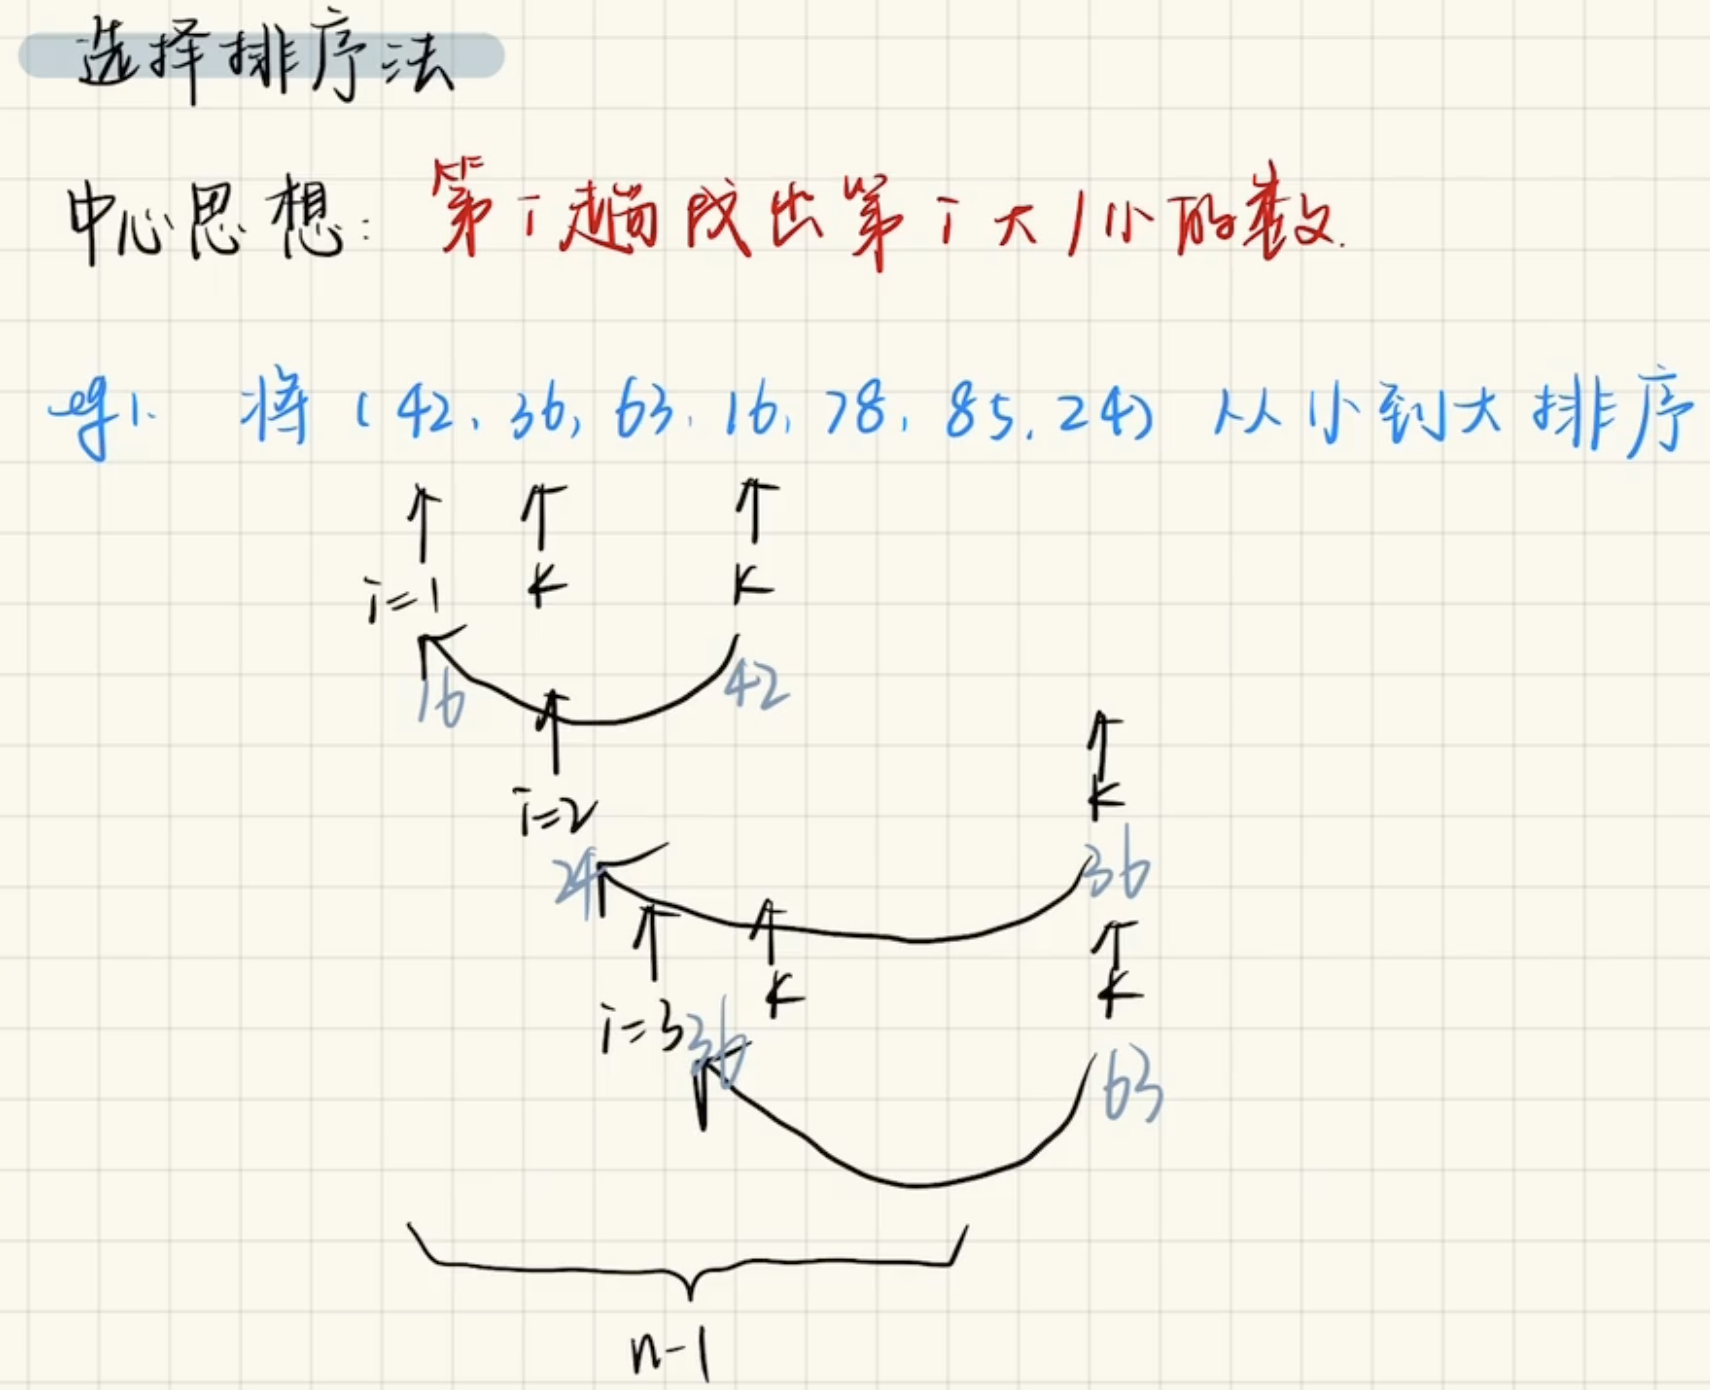 选择排序法
中心思想: 第i趟找出第i大/小的数.
eg1. 将(42, 36, 63, 16, 78, 85, 24) 从小到大排序
i=1 k k
16 42
k
i=2
24 36
k k
i=3 36
63
n-1